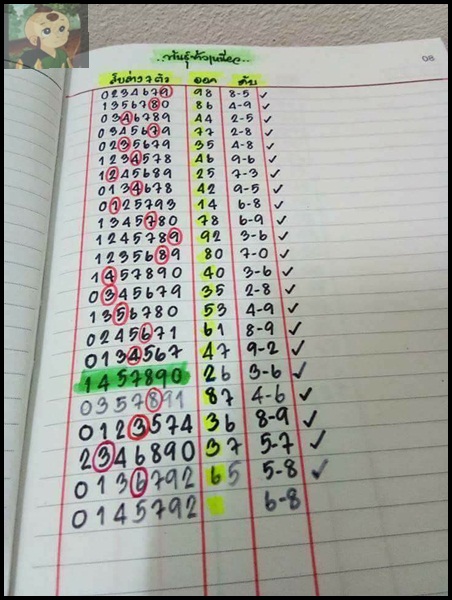 08
สิบต่าง 7 ตัว ออก ดับ
0234679 98 8-5 ✓
1356780 86 4-9 ✓
0346789 44 2-5 ✓
0345679 77 2-8 ✓
0235679 35 4-8 ✓
1234578 46 9-6 ✓
1245689 25 7-3 ✓
0134678 42 9-5 ✓
0125793 14 6-8 ✓
1345780 78 6-9 ✓
1245789 92 3-6 ✓
1235689 80 7-0 ✓
1457890 40 3-6 ✓
0345679 35 2-8 ✓
1356780 53 4-9 ✓
0245671 61 8-9 ✓
0134567 47 9-2 ✓
1457890 26 3-6 ✓
0357891 87 4-6 ✓
0123574 36 8-9 ✓
2346890 37 5-7 ✓
0136792 65 5-8 ✓
0145792 6-8